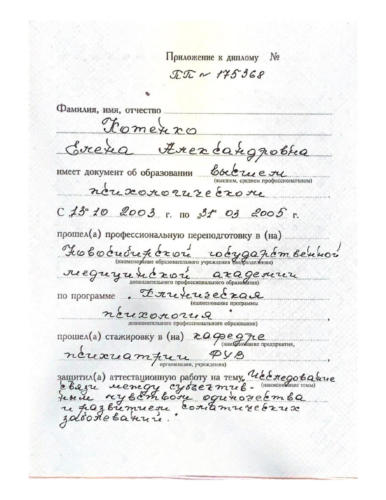 Приложение к диплому №
ПП № 175368
Фамилия, имя, отчество
Котенко
Елена Александровна
имеет документ об образовании высшем
(высшем, среднем профессиональном)
психологическом
С 15 10 2003 г. по 31 03 2005 г.
прошел(а) профессиональную переподготовку в (на)
Новосибирской государственной
(наименование образовательного учреждения (подразделения)
медицинской академии
дополнительного профессионального образования)
по программе Клиническая
(наименование программы
психология
дополнительного профессионального образования)
прошел(а) стажировку в (на) кафедре
(наименование предприятия,
психиатрии ФУВ
организации, учреждения)
защитил(а) аттестационную работу на тему Исследование
(наименование темы)
связи между субъектив-
ным чувством одиночества
и развитием соматических
заболеваний.